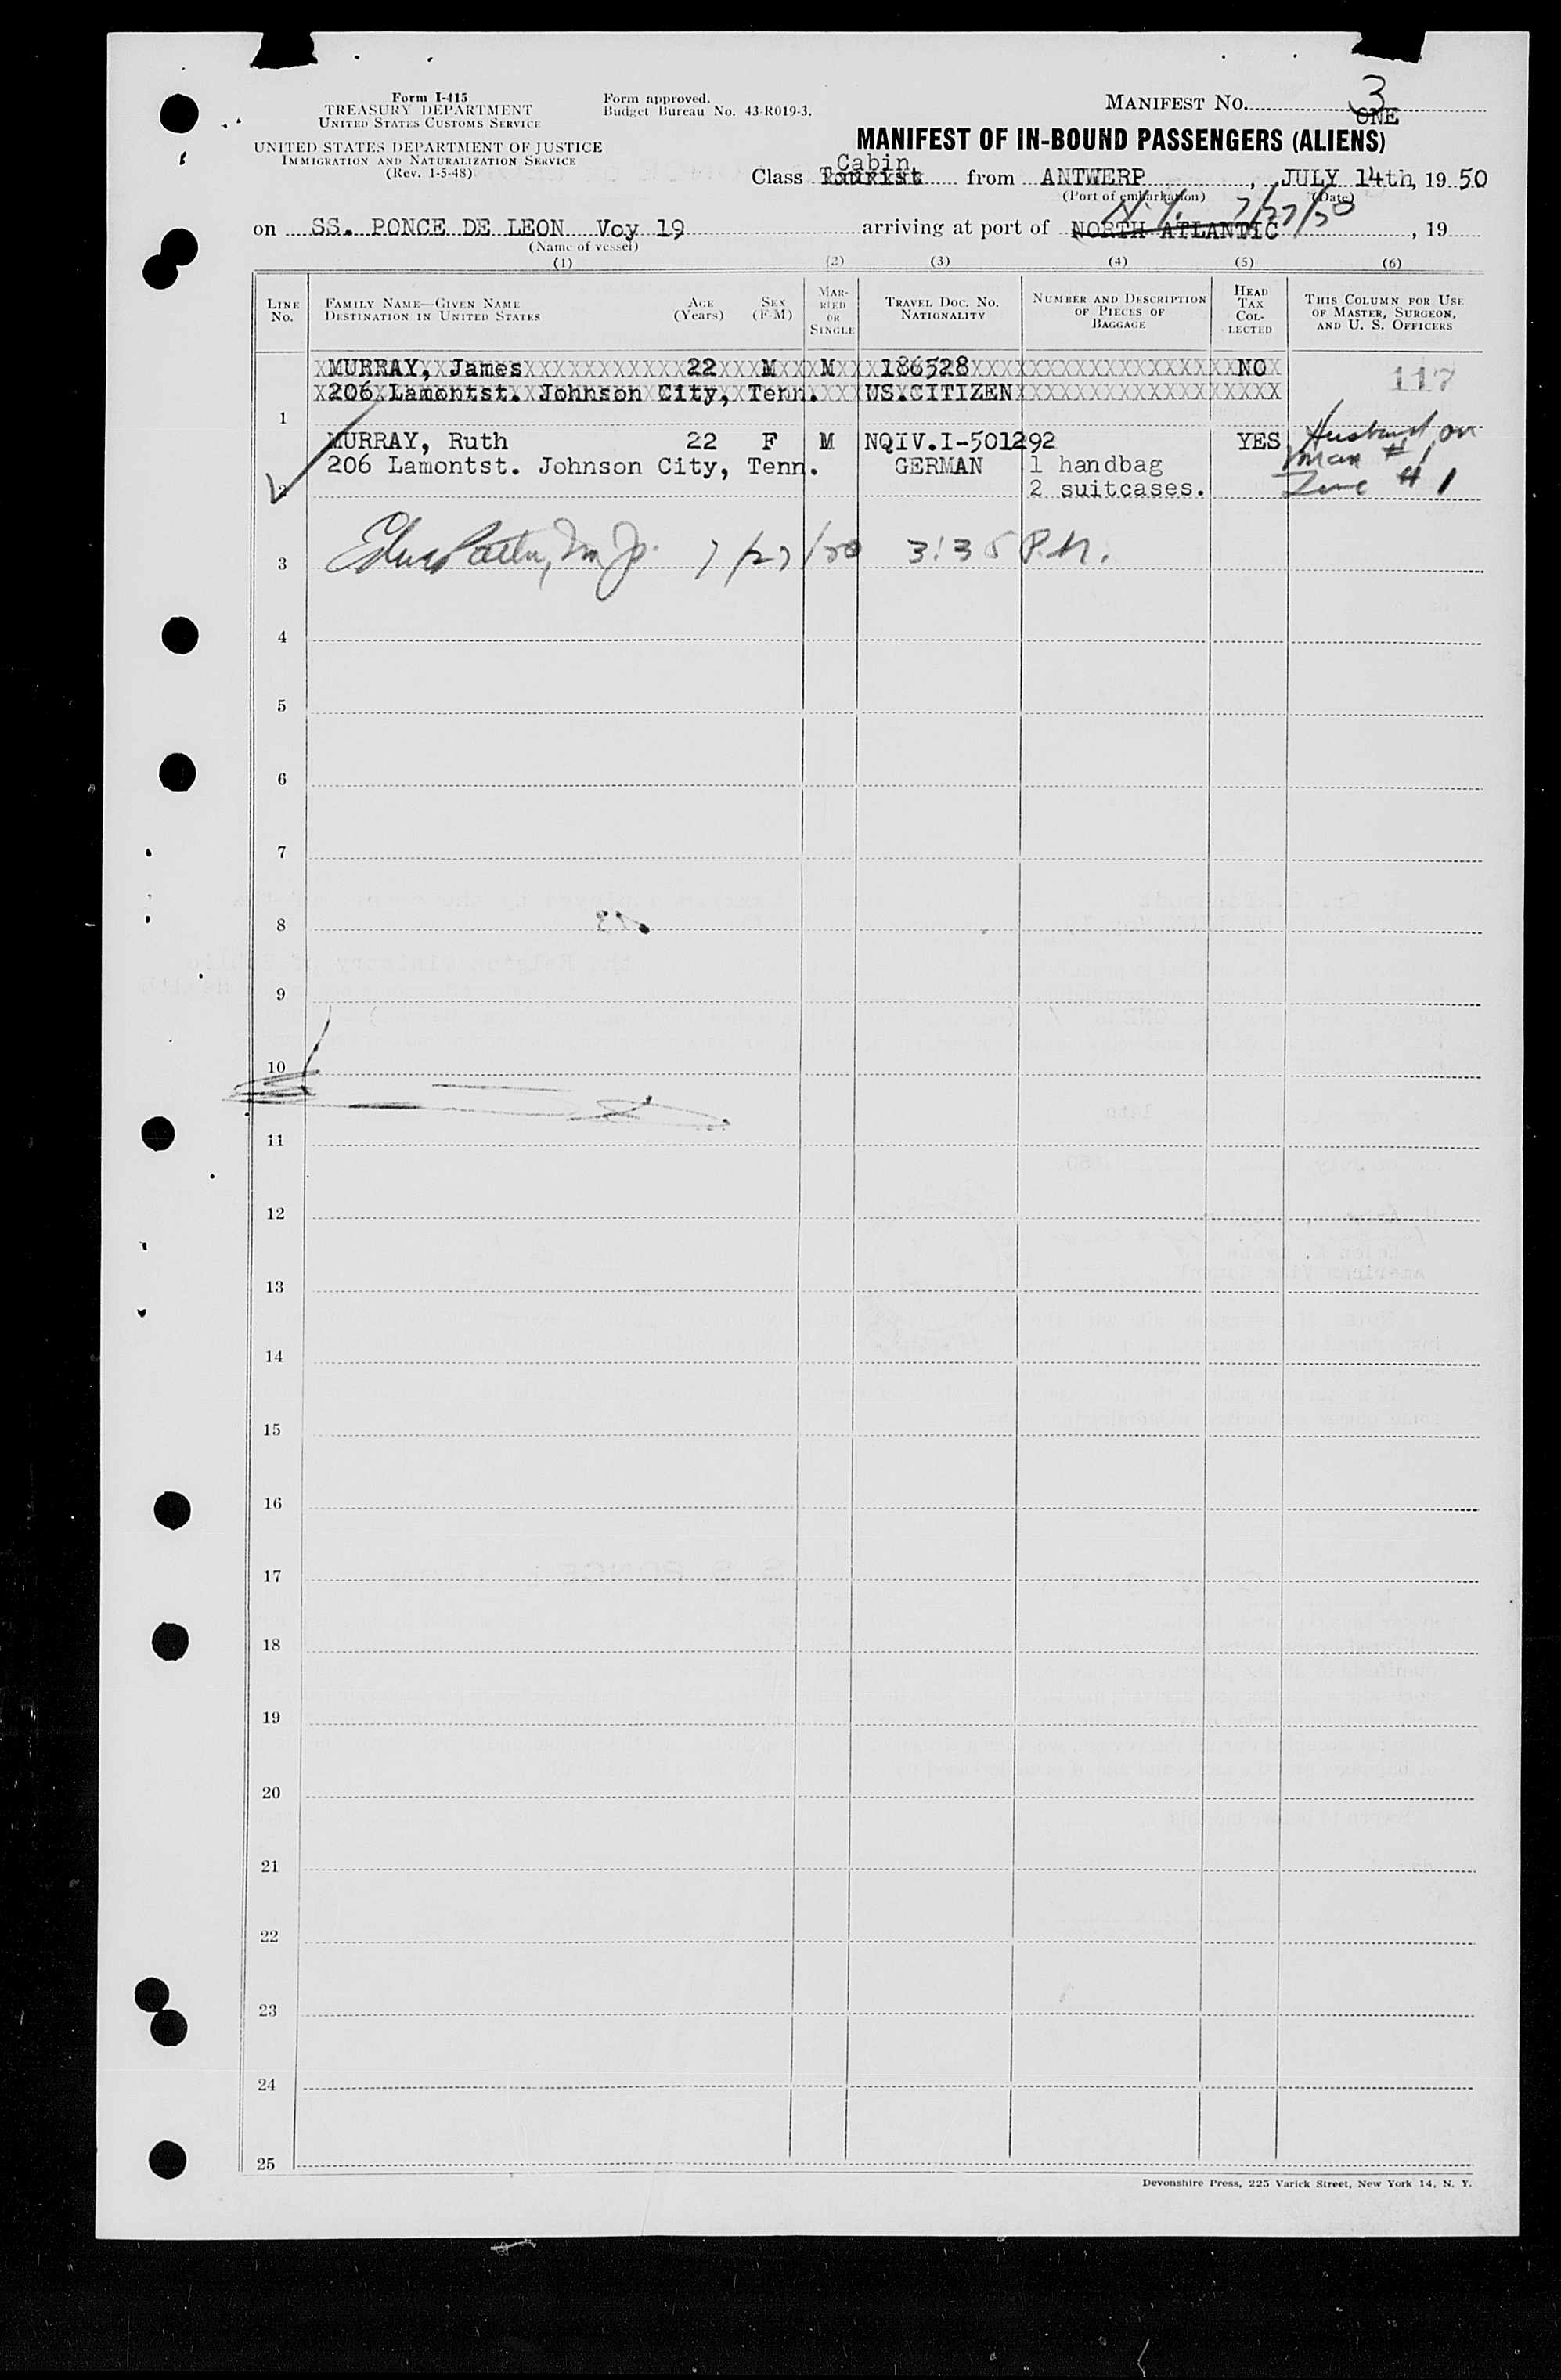 Form I-415
TREASURY DEPARTMENT
UNITED STATES CUSTOMS SERVICE
UNITED STATES DEPARTMENT OF JUSTICE
IMMIGRATION AND NATURALIZATION SERVICE
(Rev. 1-5-48)
Form approved.
Budget Bureau No. 43-R019-3.
MANIFEST NO. 3
ONE
MANIFEST OF IN-BOUND PASSENGERS (ALIENS)
Cabin
Class Tourist from ANTWERP, JULY 14th, 1950
(Port of embarkation) (Date)
N.Y. 7/27/50
on SS. PONCE DE LEON Voy 19 arriving at port of NORTH ATLANTIC, 19
(Name of vessel)
(1) (2) (3) (4) (5) (6)
LINE NO. FAMILY NAME—GIVEN NAME DESTINATION IN UNITED STATES AGE (Years) SEX (F-M) MARRIED OR SINGLE TRAVEL DOC. NO. NATIONALITY NUMBER AND DESCRIPTION OF PIECES OF BAGGAGE HEAD TAX COLLECTED THIS COLUMN FOR USE OF MASTER, SURGEON, AND U. S. OFFICERS
MURRAY, James 22 M M 186528 NO 117
206 Lamontst. Johnson City, Tenn. US.CITIZEN
1
MURRAY, Ruth 22 F M NQIV.I-501292 YES Husband on
206 Lamontst. Johnson City, Tenn. GERMAN 1 handbag man # 1
2 2 suitcases. Line # 1
3 7/27/50 3:35 P.M.
4
5
6
7
8
9
10
11
12
13
14
15
16
17
18
19
20
21
22
23
24
25
Devonshire Press, 225 Varick Street, New York 14, N. Y.